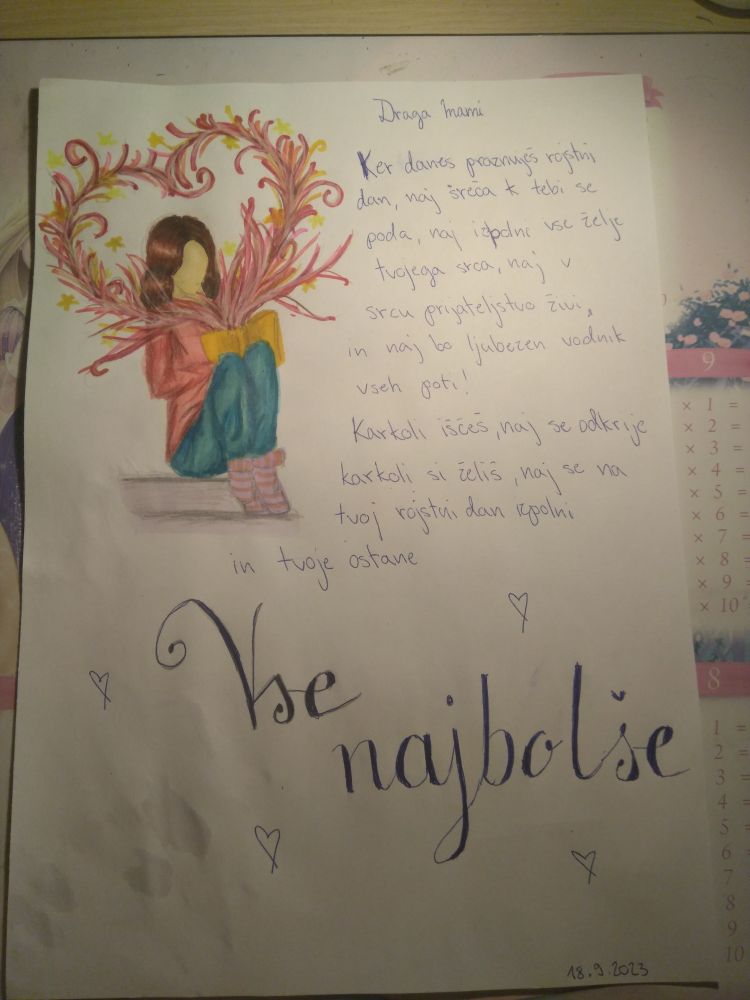 Draga mami
Ker danes praznuješ rojstni
dan, naj sreča k tebi se
poda, naj izpolni vse želje
tvojega srca, naj v
srcu prijateljstvo živi,
in naj bo ljubezen vodnik
vseh poti!
Karkoli iščeš, naj se odkrije
karkoli si želiš, naj se na
tvoj rojstni dan izpolni
in tvoje ostane
Vse
najbolše
18.9.2023
9
× 1 =
× 2 =
× 3 =
× 4 =
× 5 =
× 6 =
× 7 =
× 8 =
× 9 =
× 10
8
1 =
2 =
3 =
4 =
5 =
6 =
7
8
9
10